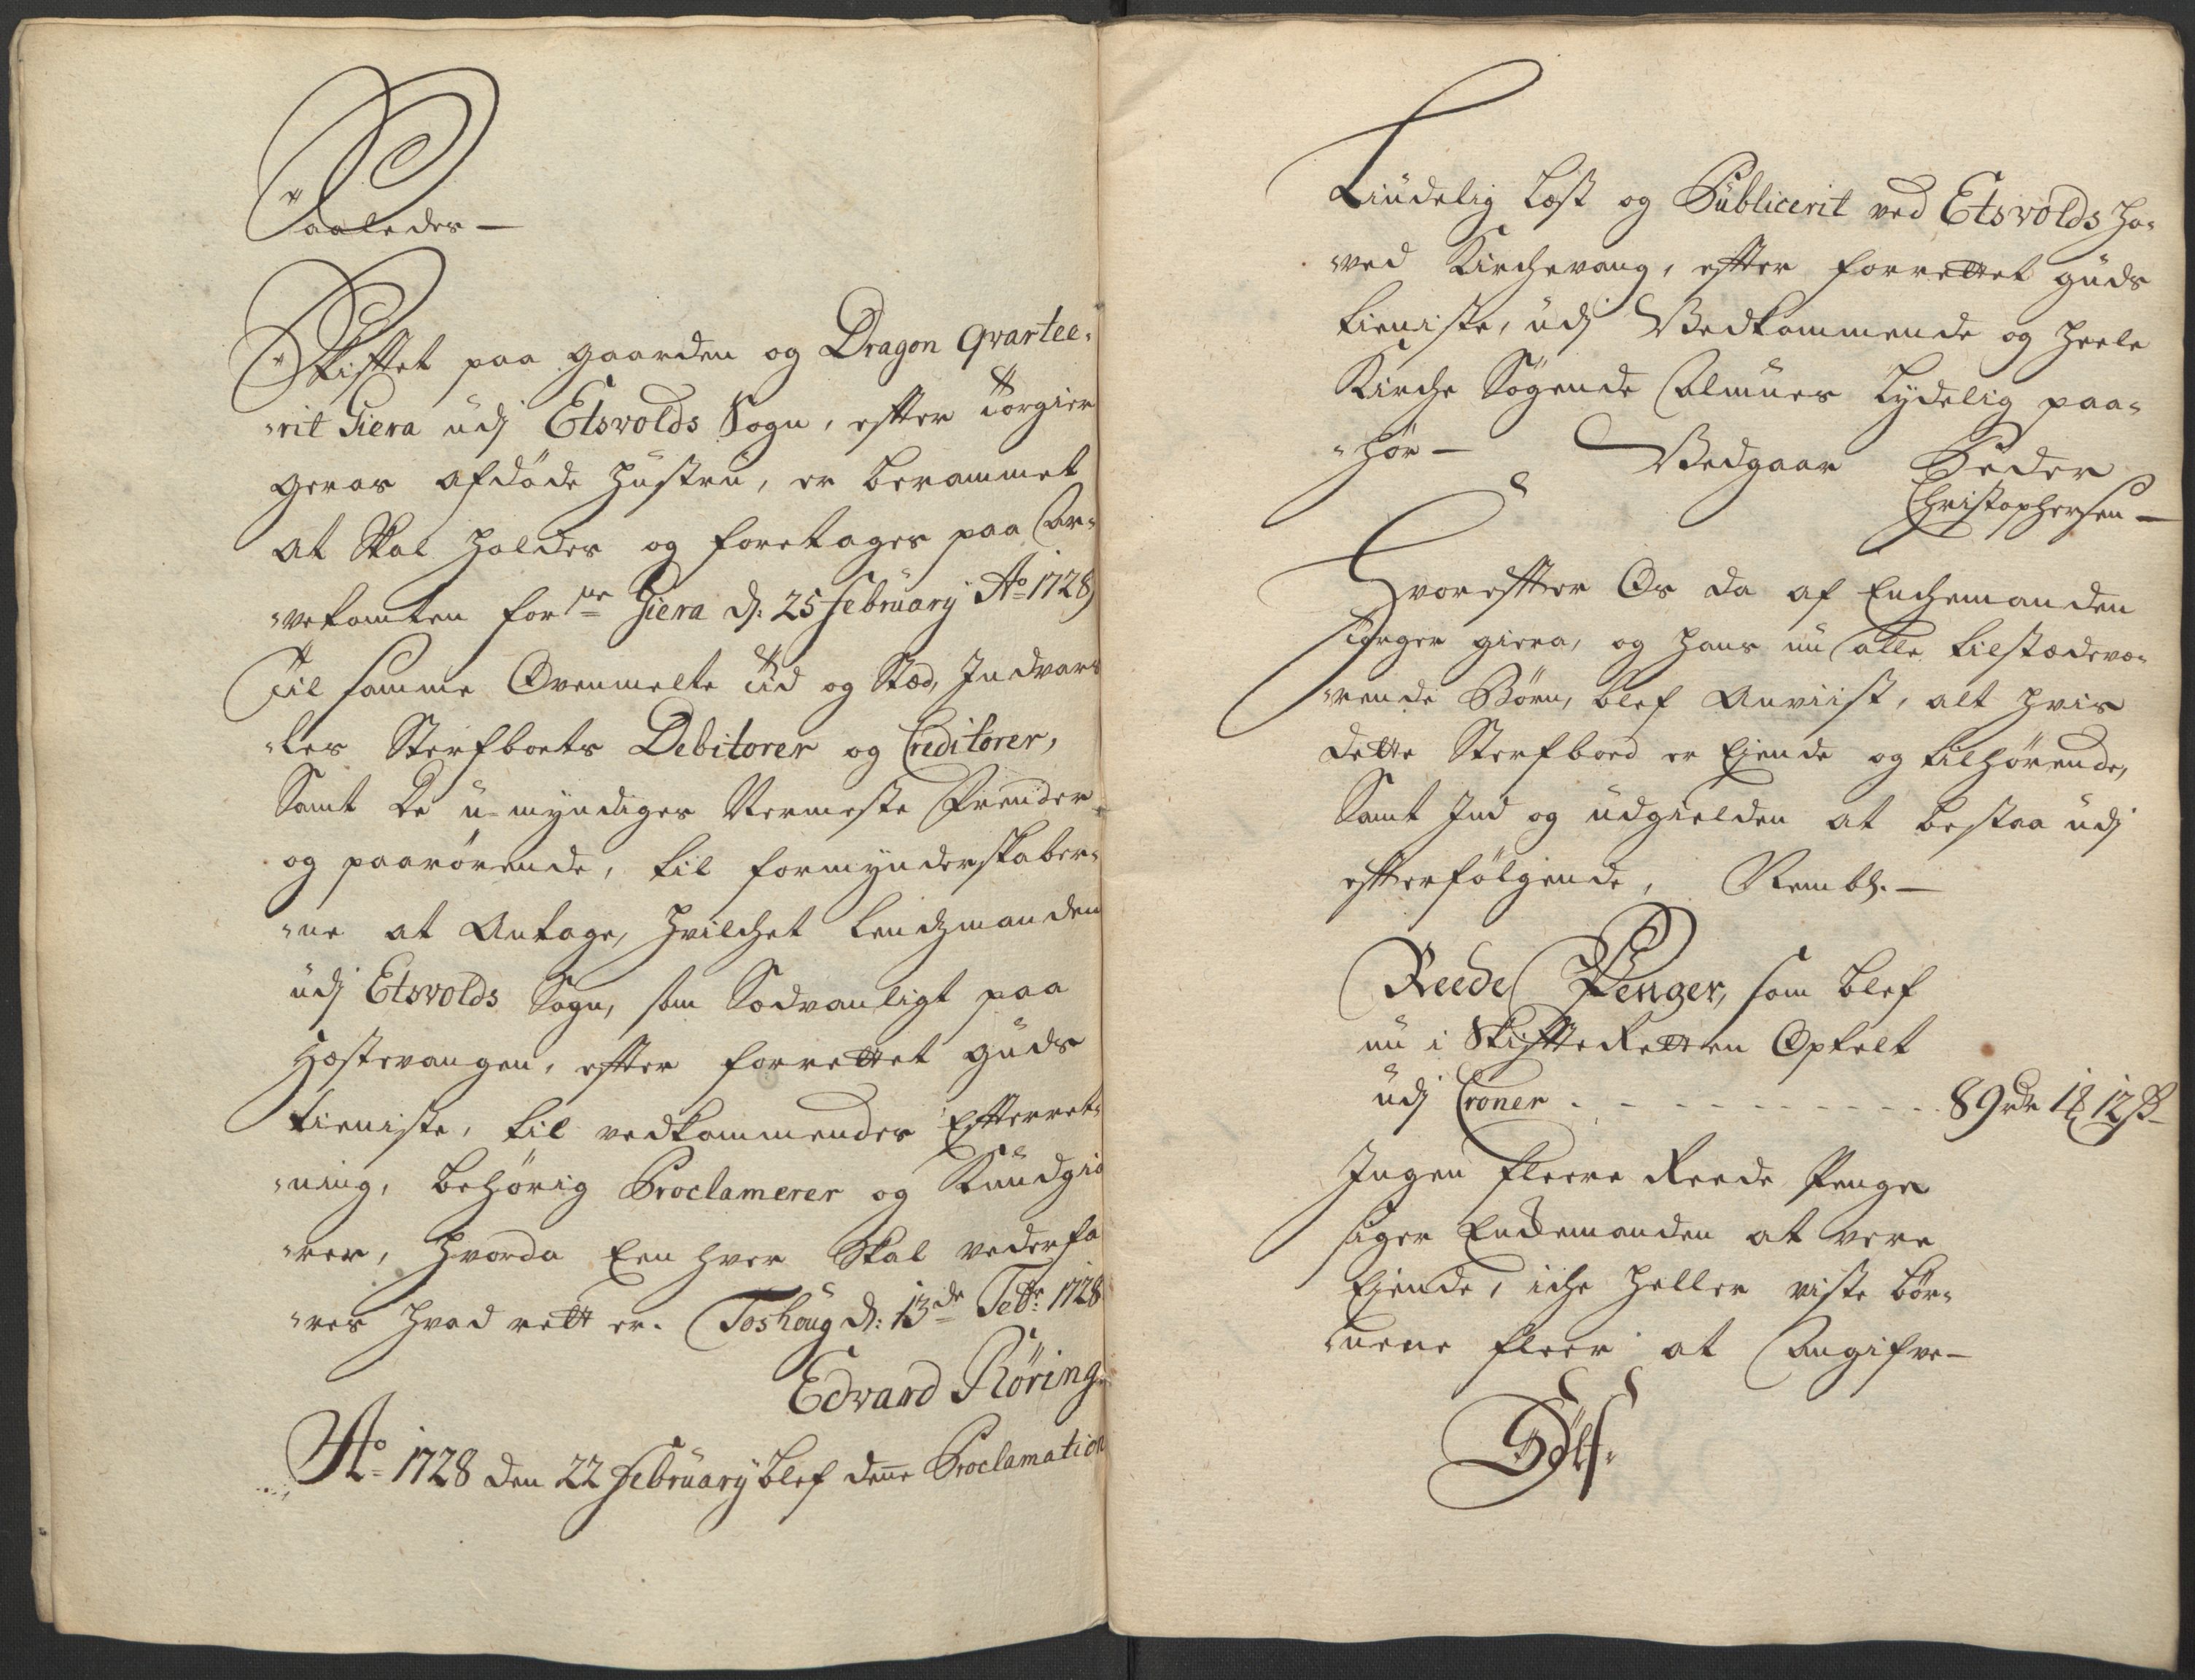 Saaledes —
Skifftet paa gaarden og Dragon Qvartee-
-rit Giera udj Etsvolds Sogn, effter Torgier
Geras afdøde Hüstrü, er berammet
at Skal holdes og foretages paa Ar-
-vetomten for^ne Giera d: 25 February A^o 1728,
Til samme Ovenmelte Tid og Stæd, Indvars-
-les Sterfboets Debitorer og Creditorer,
Samt De u-myndiges Nermeste Frender
og paarørende, til formynderskaber-
-ne at Antage, hvilchet Lendsmanden
udj Etsvolds Sogn, som Sædvanligt paa
Hæstevangen, effter forrettet Guds
tieniste, til vedkommendes Efterret-
-ning, behørig Proclamerer og Kundgiø
-rer, hvorda Een hver Skal vederfa
-res hvad rett er. Toshoug d: 13^de Febr: 1728
Edvard Röring
A^o 1728 den 22 February blef denne Proclamation
Liudelig Læst og Publicerit ved Etsvolds Ho-
-ved Kirchevang, effter forrettet Guds
tieniste, udj Vedkommende og heele
Kirche Søgende Almues Lydelig paa-
-hør — Vedgaar Peder
Christophersen —
Hvoreffter Os da af Enchemanden
Torger Giera, og hans nu alle tilstædevæ-
-rende Børn, blef Anviist, alt hvis
dette Sterfboed er Ejende og tilhørende,
Samt Ind og udgielden at bestaa udj
effterfølgende, Nembl. —
Reede Penger, som blef
nu i Skiffte Retten Optelt
udj Croner - - - - - - - - - - 89 rdr 1 ₰ 12 ß
Ingen fleere Reede Penge
siger Enckemanden at vere
Ejende, iche heller viste Bør-
-nene fleer at Angifve —
Sølf-